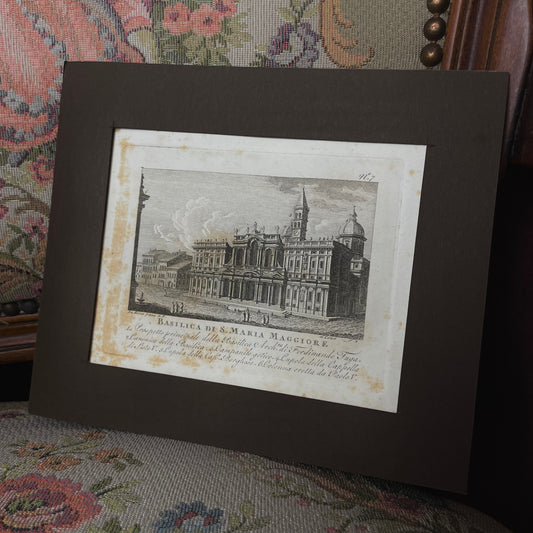 BASILICA DI S. MARIA MAGGIORE
1. Prospetto principale della Basilica Archit. di Ferdinando Fuga.
Canonica della Basilica Campanile gotico Cupola della Cappella
di Sisto V. Cupola della Capp. Borghese. Colonna eretta da Paolo V.